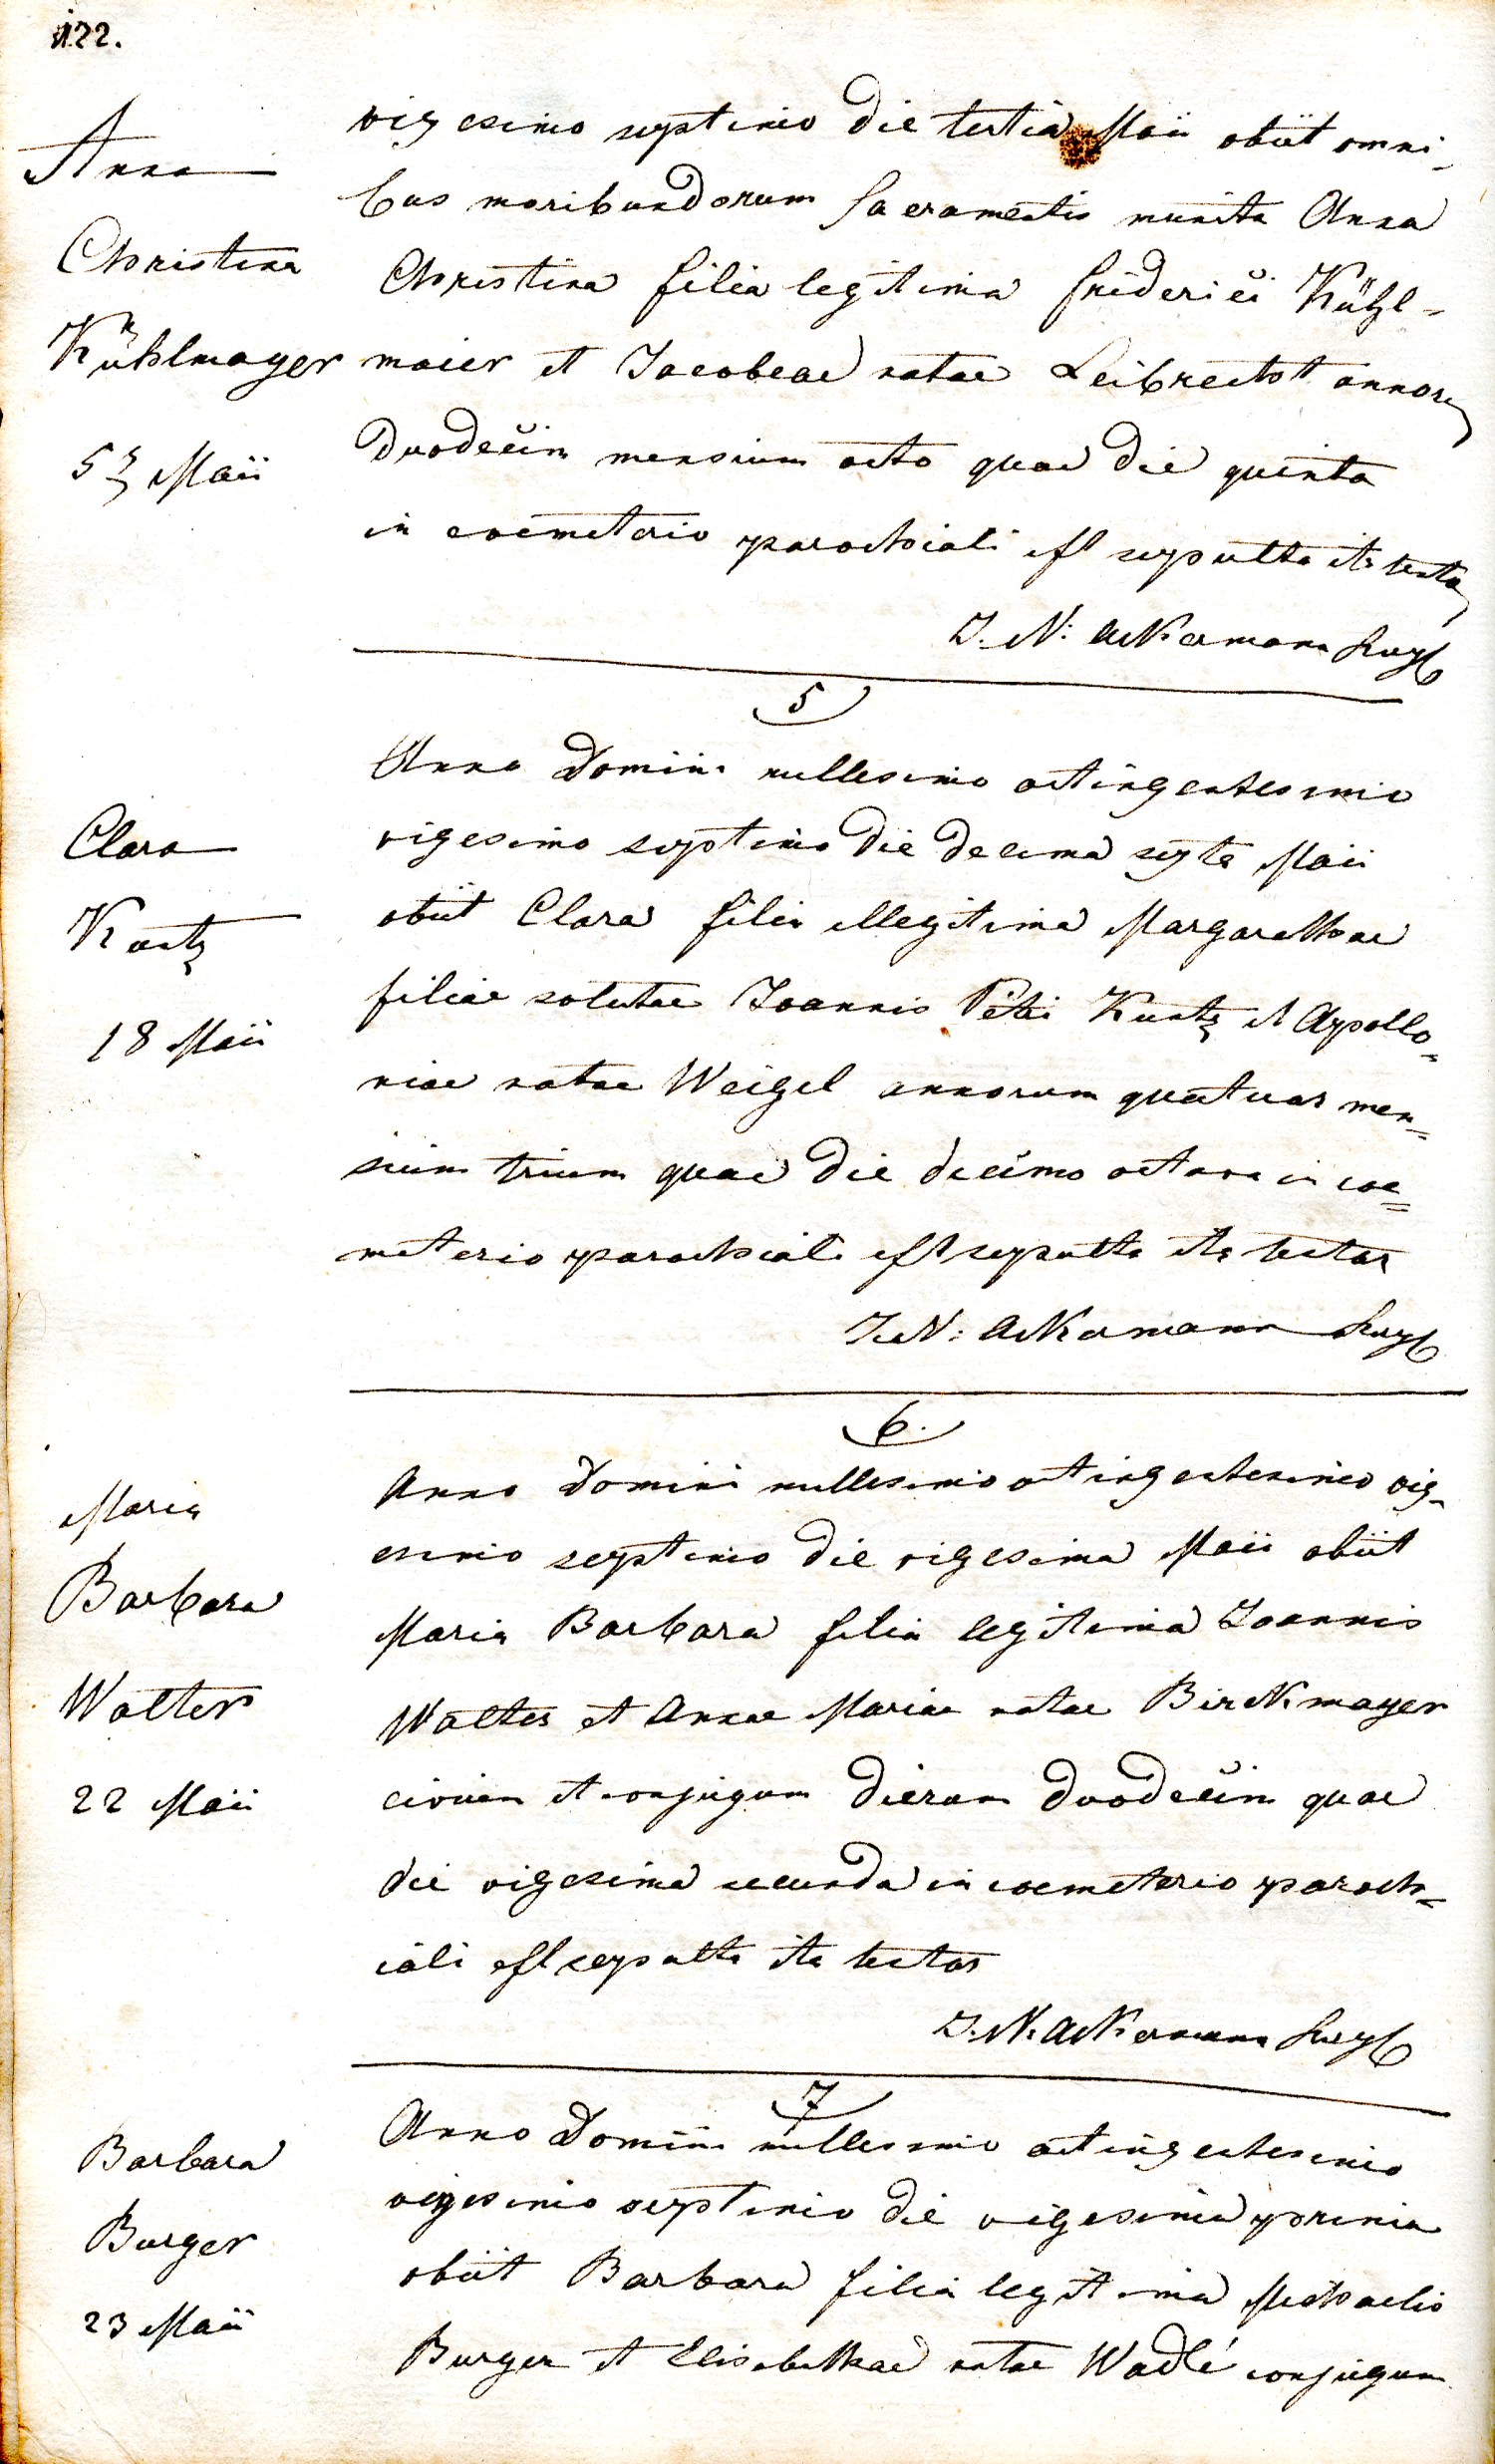 122.
Anna
Christina
Kühlmayer
5ᵗ Maii
vigesimo septimo die tertia Maii obiit omni-
bus moribundorum sacramentis munita Anna
Christina filia legitima friderici Kühl-
maier et Jacobeae natae Leibrecht annor
duodecim mensium octo quae die quinta
in coemeterio parochiali est sepulta ita testor
J. N: Ackermann
5
Clara
Kuntz
18 Maii
Anno Domini millesimo octingentesimo
vigesimo septimo die decima sexta Maii
obiit Clara filia illegitima Margarethae
filiae solutae Joannis Petri Kuntz et Apollo=
niae natae Weigel annorum quatuor men=
sium trium quae die decimo octava in coe=
meterio parochiali est sepulta ita testor
J. N: Ackermann
6.
Maria
Barbara
Walter
22 Maii
Anno Domini millesimo octingentesimo vig-
esimo septimo die vigesima Maii obiit
Maria Barbara filia legitima Joannis
Walter et Annae Mariae natae Birckmayer
civium et conjugum dierum duodecim quae
die vigesima secunda in coemeterio paroch=
iali est sepulta ita testor
J. N. Ackermann
7
Barbara
Burger
23 Maii
Anno Domini millesimo octingentesimo
vigesimo septimo die vigesima prima
obiit Barbara filia legitima Michaelis
Burger et Elisabethae natae Wadlé conjugum